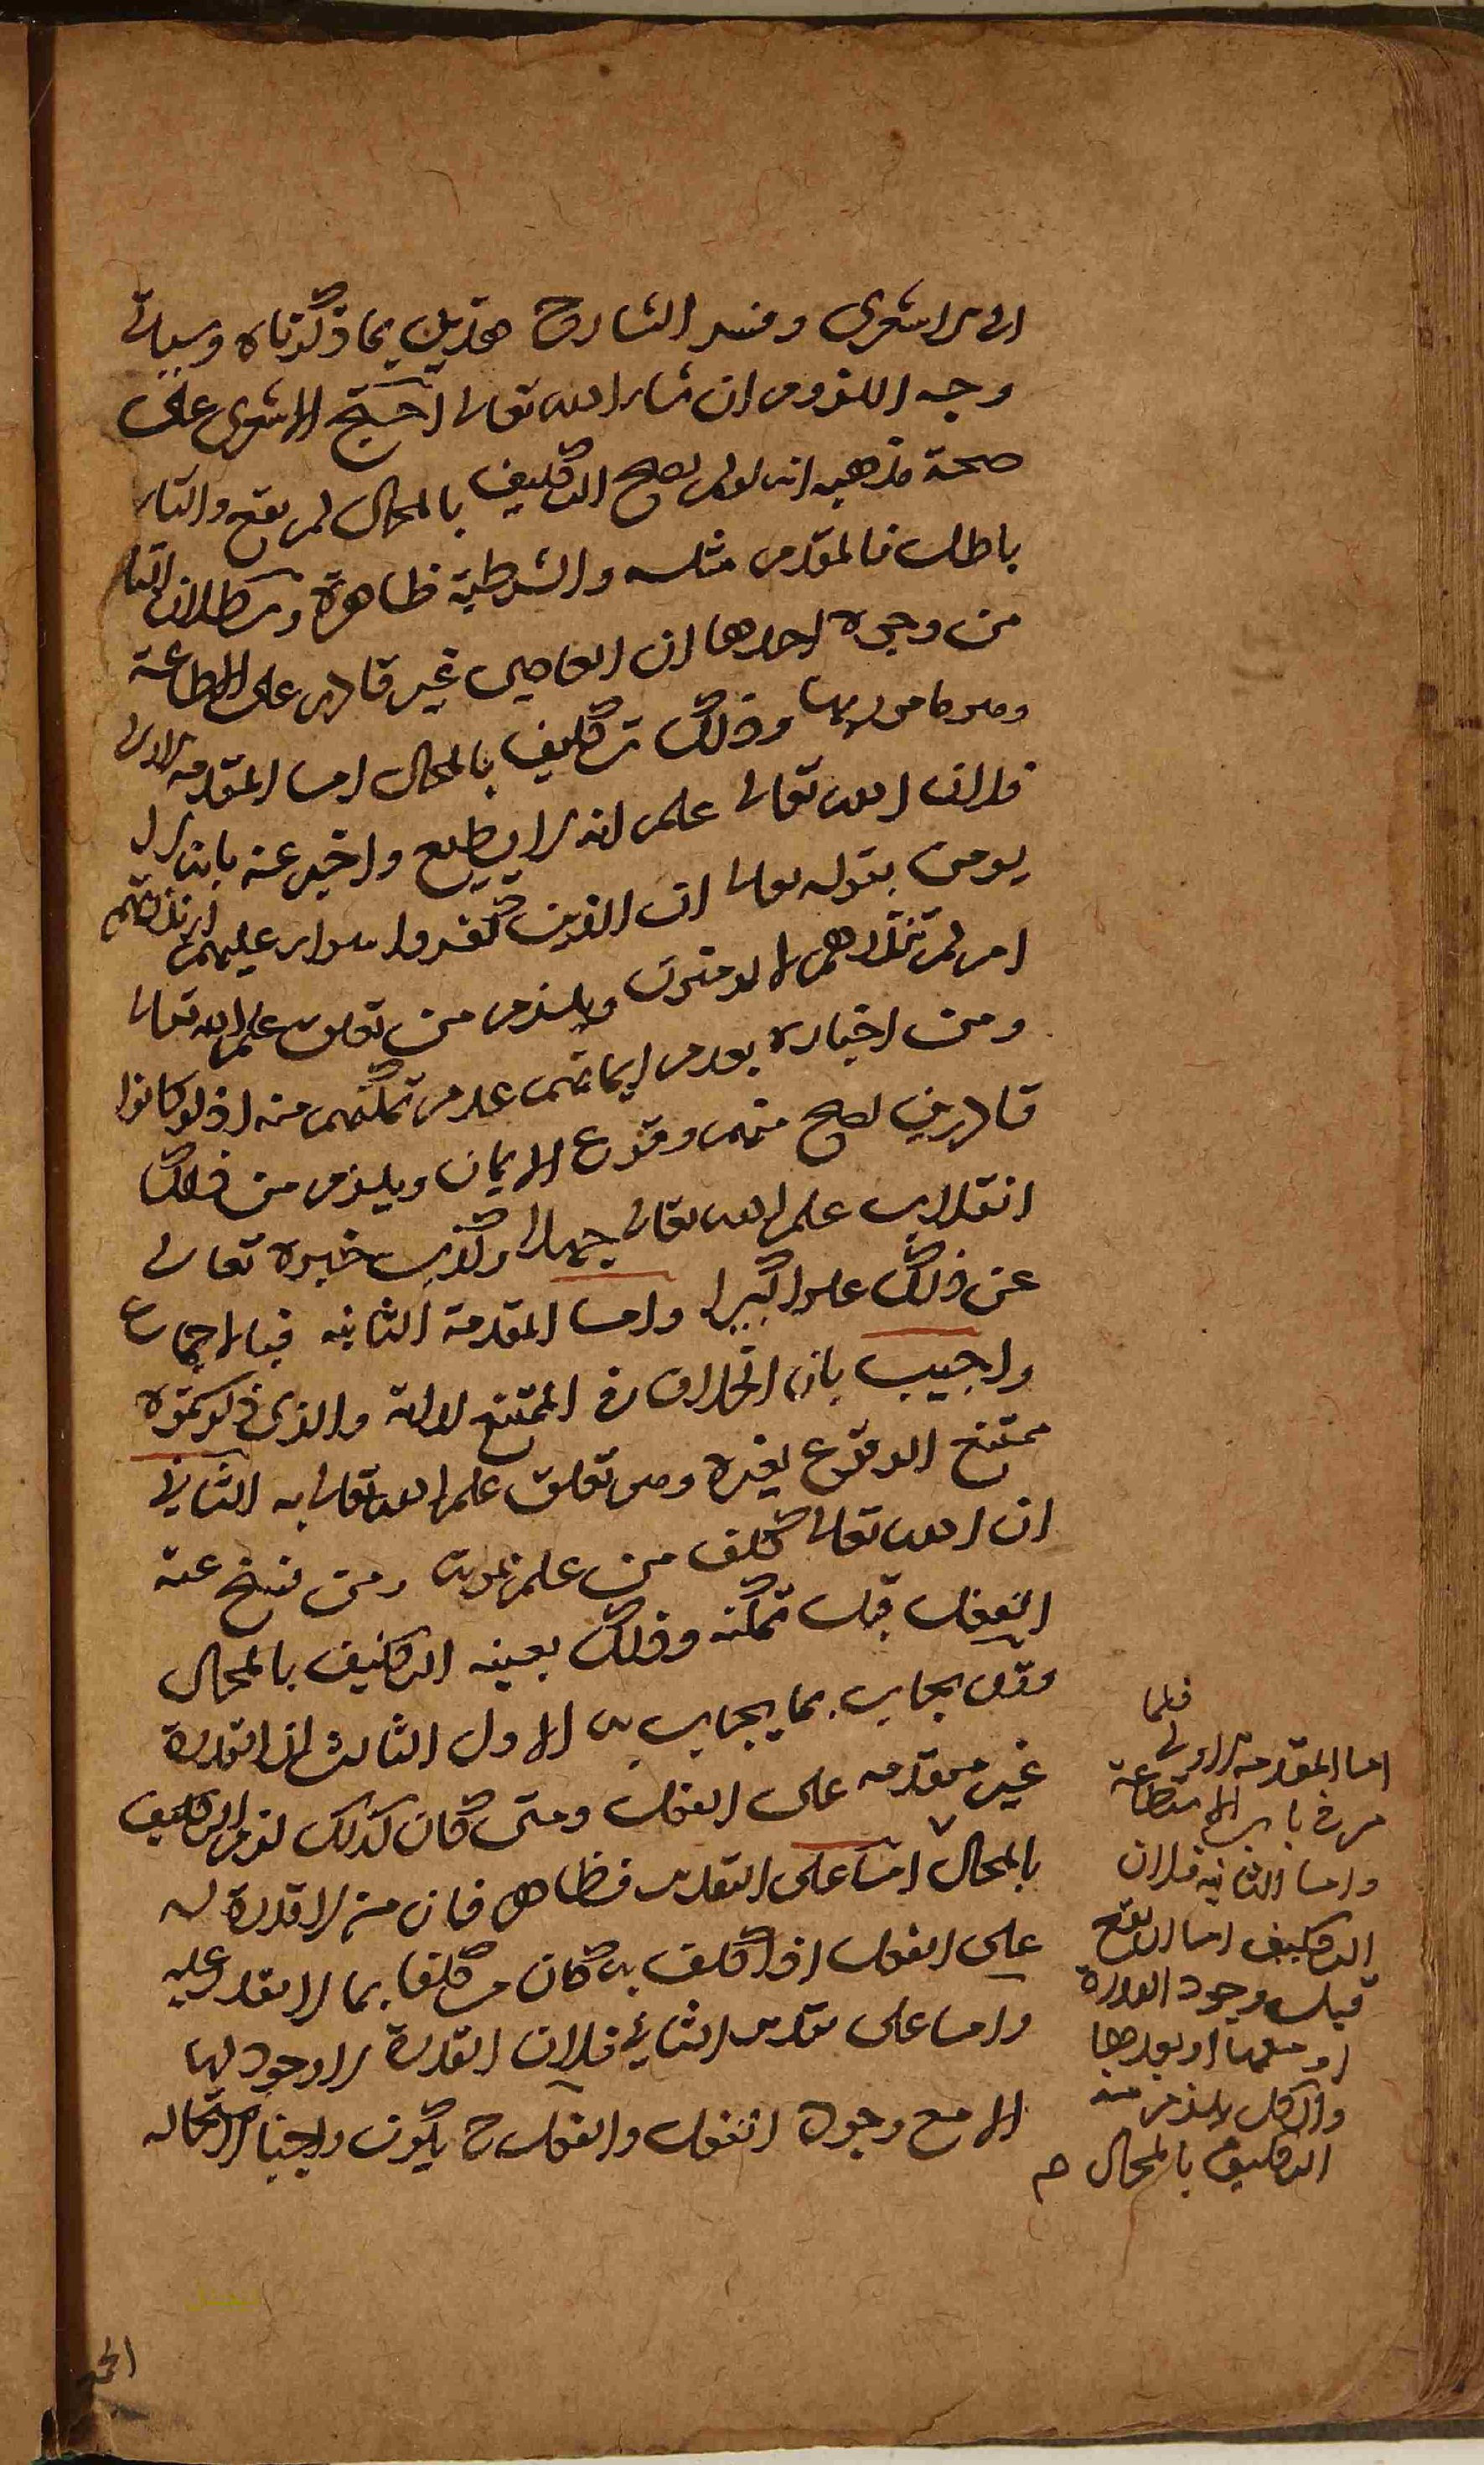 الى الاشعرى وفسر الشارح هذين بما ذكرناه وسياتى
وجه اللزوم ان شاء الله تعالى احتج الاشعرى على
صحة مذهبه انه لو لم يصح التكليف بالمحال لم يقع والتالى
باطل فالمقدم مثله والشرطية ظاهرة وبطلان التالى
من وجوه احدها ان العاصى غير قادر على الطاعة
وهو مامور بها وذلك تكليف بالمحال اما المقدمة الاولى
فلان الله تعالى علم انه لا يطيع واخبر عنه بانه لا
يومن بقوله تعالى ان الذين كفروا سواء عليهم ءانذرتهم
ام لم تنذرهم لا يومنون ويلزم من تعلق علم الله تعالى
ومن اخباره بعدم ايمانهم عدم تمكنهم منه اذ لو كانوا
قادرين لصح منهم وقوع الايمان ويلزم من ذلك
انقلاب علم الله تعالى جهلا وكذب خبره تعالى
عن ذلك علوا كبيرا واما المقدمة الثانيه فبالاجماع
واجيب بان الخلاف فى الممتنع لذاته والذى ذكرتموه
ممتنع الوقوع لغيره وهو تعلق علم الله تعالى به الثانى
ان الله تعالى كلف من علم بموته ومن نسخ عنه
الفعل قبل تمكنه وذلك بعينه التكليف بالمحال
وقد يجاب بما يجاب به الاول الثالث ان القدرة
غير متقدمه على الفعل ومتى كان كذلك لزم التكليف
بالمحال اما على التقدير فظاهر فان من لا قدرة له
على الفعل اذا كلف به كان مكلفا بما لا يقدر عليه
واما على تقدير الثانى فلان القدرة لا وجود لها
الا مع وجود الفعل والفعل ح يكون واجبا لاستحاله
اما المقدمة الاولى فلما
مر فى باب الاستطاعة
واما الثانيه فلان
التكليف اما ان يقع
قبل وجود القدرة
او معها او بعدها
والكل يلزم منه
التكليف بالمحال م